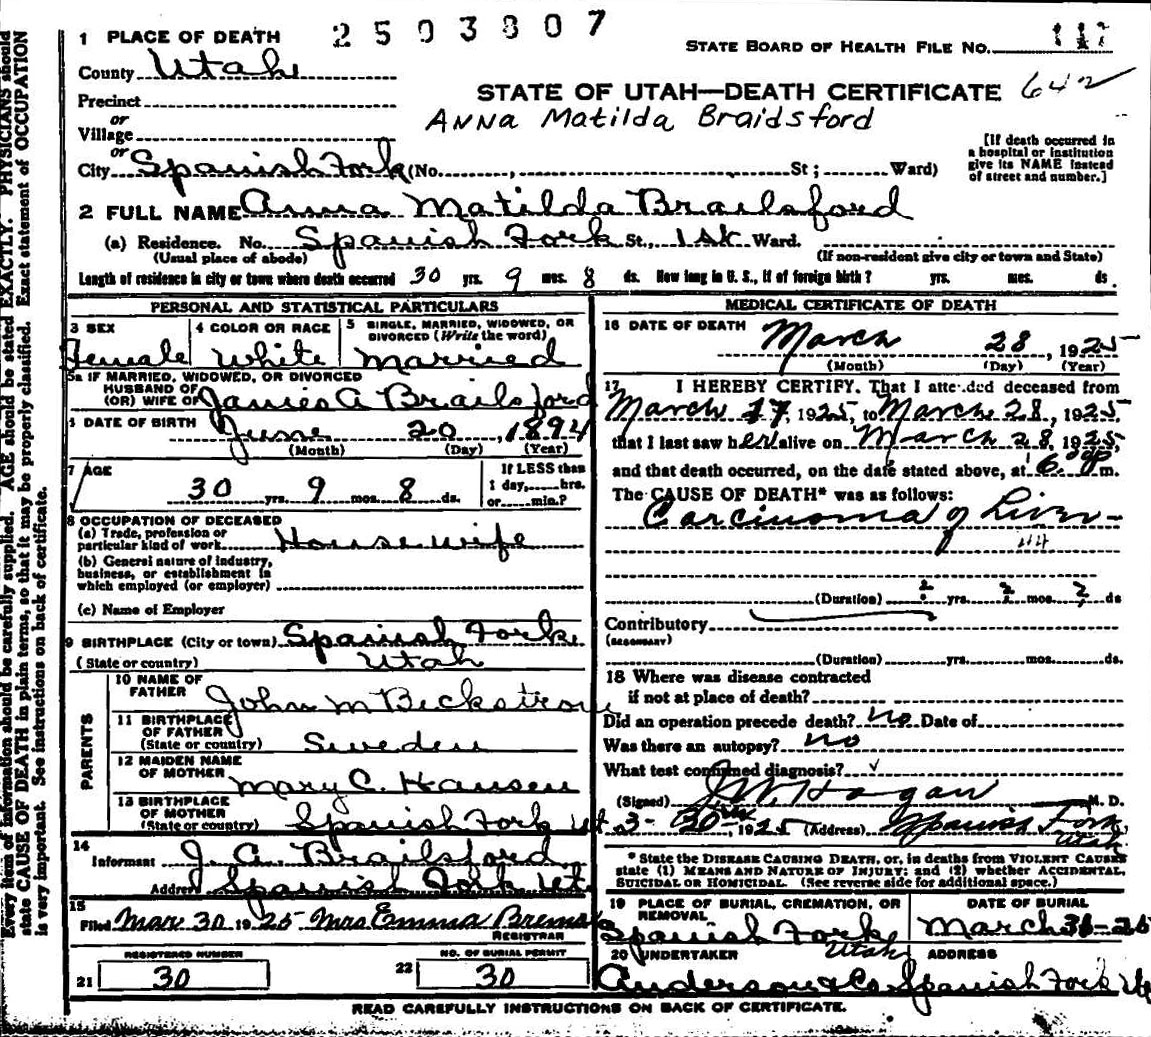 2503807
1 PLACE OF DEATH
STATE BOARD OF HEALTH FILE NO. 117
County Utah
STATE OF UTAH—DEATH CERTIFICATE 642
Precinct
Anna Matilda Braidsford
or
Village
or
City Spanish Fork (No. , St ; Ward)
[If death occurred in a hospital or institution give its NAME instead of street and number.]
2 FULL NAME Anna Matilda Brailsford
(a) Residence. No. Spanish Fork St., 1st Ward.
(Usual place of abode) (If non-resident give city or town and State)
Length of residence in city or town where death occurred 30 yrs. 9 mos. 8 ds. How long in U. S., if of foreign birth? yrs. mos. ds.
PERSONAL AND STATISTICAL PARTICULARS
3 SEX
Female
4 COLOR OR RACE
White
5 SINGLE, MARRIED, WIDOWED, OR DIVORCED (Write the word)
Married
5a IF MARRIED, WIDOWED, OR DIVORCED
HUSBAND OF
(OR) WIFE OF James A Brailsford
DATE OF BIRTH
June 20, 1894
(Month) (Day) (Year)
7 AGE
30 yrs. 9 mos. 8 ds.
If LESS than
1 day, hrs.
or min.?
8 OCCUPATION OF DECEASED
(a) Trade, profession or
particular kind of work Housewife
(b) General nature of industry,
business, or establishment in
which employed (or employer)
(c) Name of Employer
9 BIRTHPLACE (City or town) Spanish Fork
(State or country) Utah
PARENTS
10 NAME OF
FATHER John M Beckstrom
11 BIRTHPLACE
OF FATHER
(State or country) Sweden
12 MAIDEN NAME
OF MOTHER Mary C. Hansen
13 BIRTHPLACE
OF MOTHER
(State or country) Spanish Fork Ut
14
Informant J. A. Brailsford
Address Spanish Fork Ut
15
Filed Mar 30 1925 Mrs Emma
REGISTRAR
REGISTERED NUMBER
21 30
NO. OF BURIAL PERMIT
22 30
MEDICAL CERTIFICATE OF DEATH
16 DATE OF DEATH
March 28, 1925
(Month) (Day) (Year)
17 I HEREBY CERTIFY. That I attended deceased from
March 17, 1925, to March 28, 1925
that I last saw her alive on March 28, 1925,
and that death occurred, on the date stated above, at 6 p m.
The CAUSE OF DEATH* was as follows:
Carcinoma of Liver
44
(Duration) ? yrs. ? mos. ? ds
Contributory
(SECONDARY)
(Duration) yrs. mos. ds.
18 Where was disease contracted
if not at place of death?
Did an operation precede death? no Date of
Was there an autopsy? no
What test confirmed diagnosis?
(Signed) J. W. Hagan M. D.
3-30th, 1925 (Address) Spanish Fork, Utah
* State the DISEASE CAUSING DEATH, or, in deaths from VIOLENT CAUSES
state (1) MEANS AND NATURE OF INJURY; and (2) whether ACCIDENTAL,
SUICIDAL OR HOMICIDAL. (See reverse side for additional space.)
19 PLACE OF BURIAL, CREMATION, OR
REMOVAL
Spanish Fork Utah
DATE OF BURIAL
March 31-25
20 UNDERTAKER
Anderson & Co
ADDRESS
Spanish Fork Ut
READ CAREFULLY INSTRUCTIONS ON BACK OF CERTIFICATE.
Every item of information should be carefully supplied. AGE should be stated EXACTLY. PHYSICIANS should
state CAUSE OF DEATH in plain terms, so that it may be properly classified. Exact statement of OCCUPATION
is very important. See instructions on back of certificate.